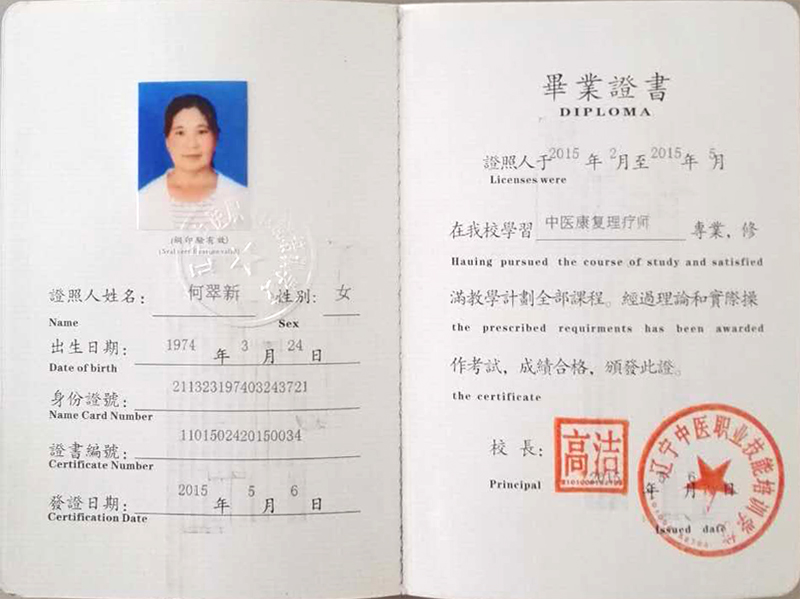 (鋼印驗有效)
證照人姓名：何翠新 性别：女
Name Sex
出生日期：1974年3月24日
Date of birth
身份證號：211323197403243721
Name Card Number
證書編號：1101502420150034
Certificate Number
發證日期：2015年5月6日
Certification Date
畢業證書
DIPLOMA
證照人于2015年2月至2015年5月
Licenses were
在我校學習中医康复理疗师專業，修
Hauing pursued the course of study and satisfied
滿教學計劃全部課程。經過理論和實際操
the prescribed requirments has been awarded
作考試，成績合格，頒發此證。
the certificate
校長：高洁
Principal
2015年 月6日
Issued date
辽宁中医职业技能培训学校